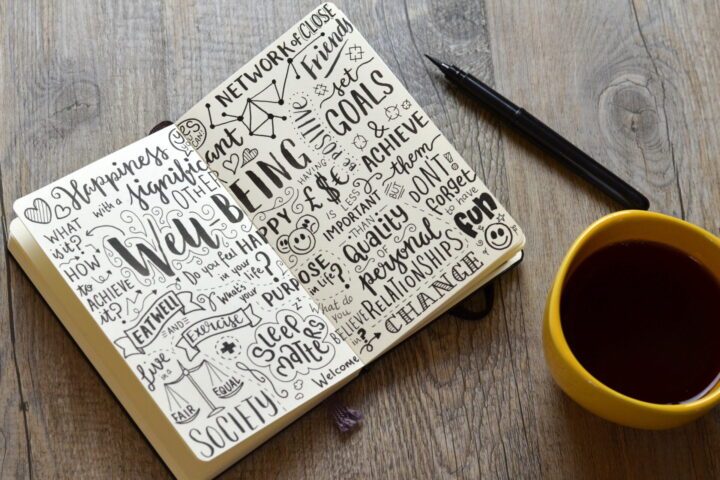 yes
Happiness
with a significant
OTHER
WHAT
is it?
HOW
to
ACHIEVE
it?
Well-BEING
Do you feel HAPPY
in your
life?
What's your PURPOSE
in life?
EAT WELL
AND
Exercise
Live
in a
FAIR
EQUAL
SOCIETY
Sleep
matters
Welcome
NETWORK of CLOSE
Friends
POSITIVE
set
GOALS
&
ACHIEVE
them
HAVING
£$€
IS LESS
IMPORTANT
THAN
Quality
of
personal
RELATIONSHIPS
BUT
DON'T
forget
to have
fun
What do
you
BELIEVE
in?
CHANGE